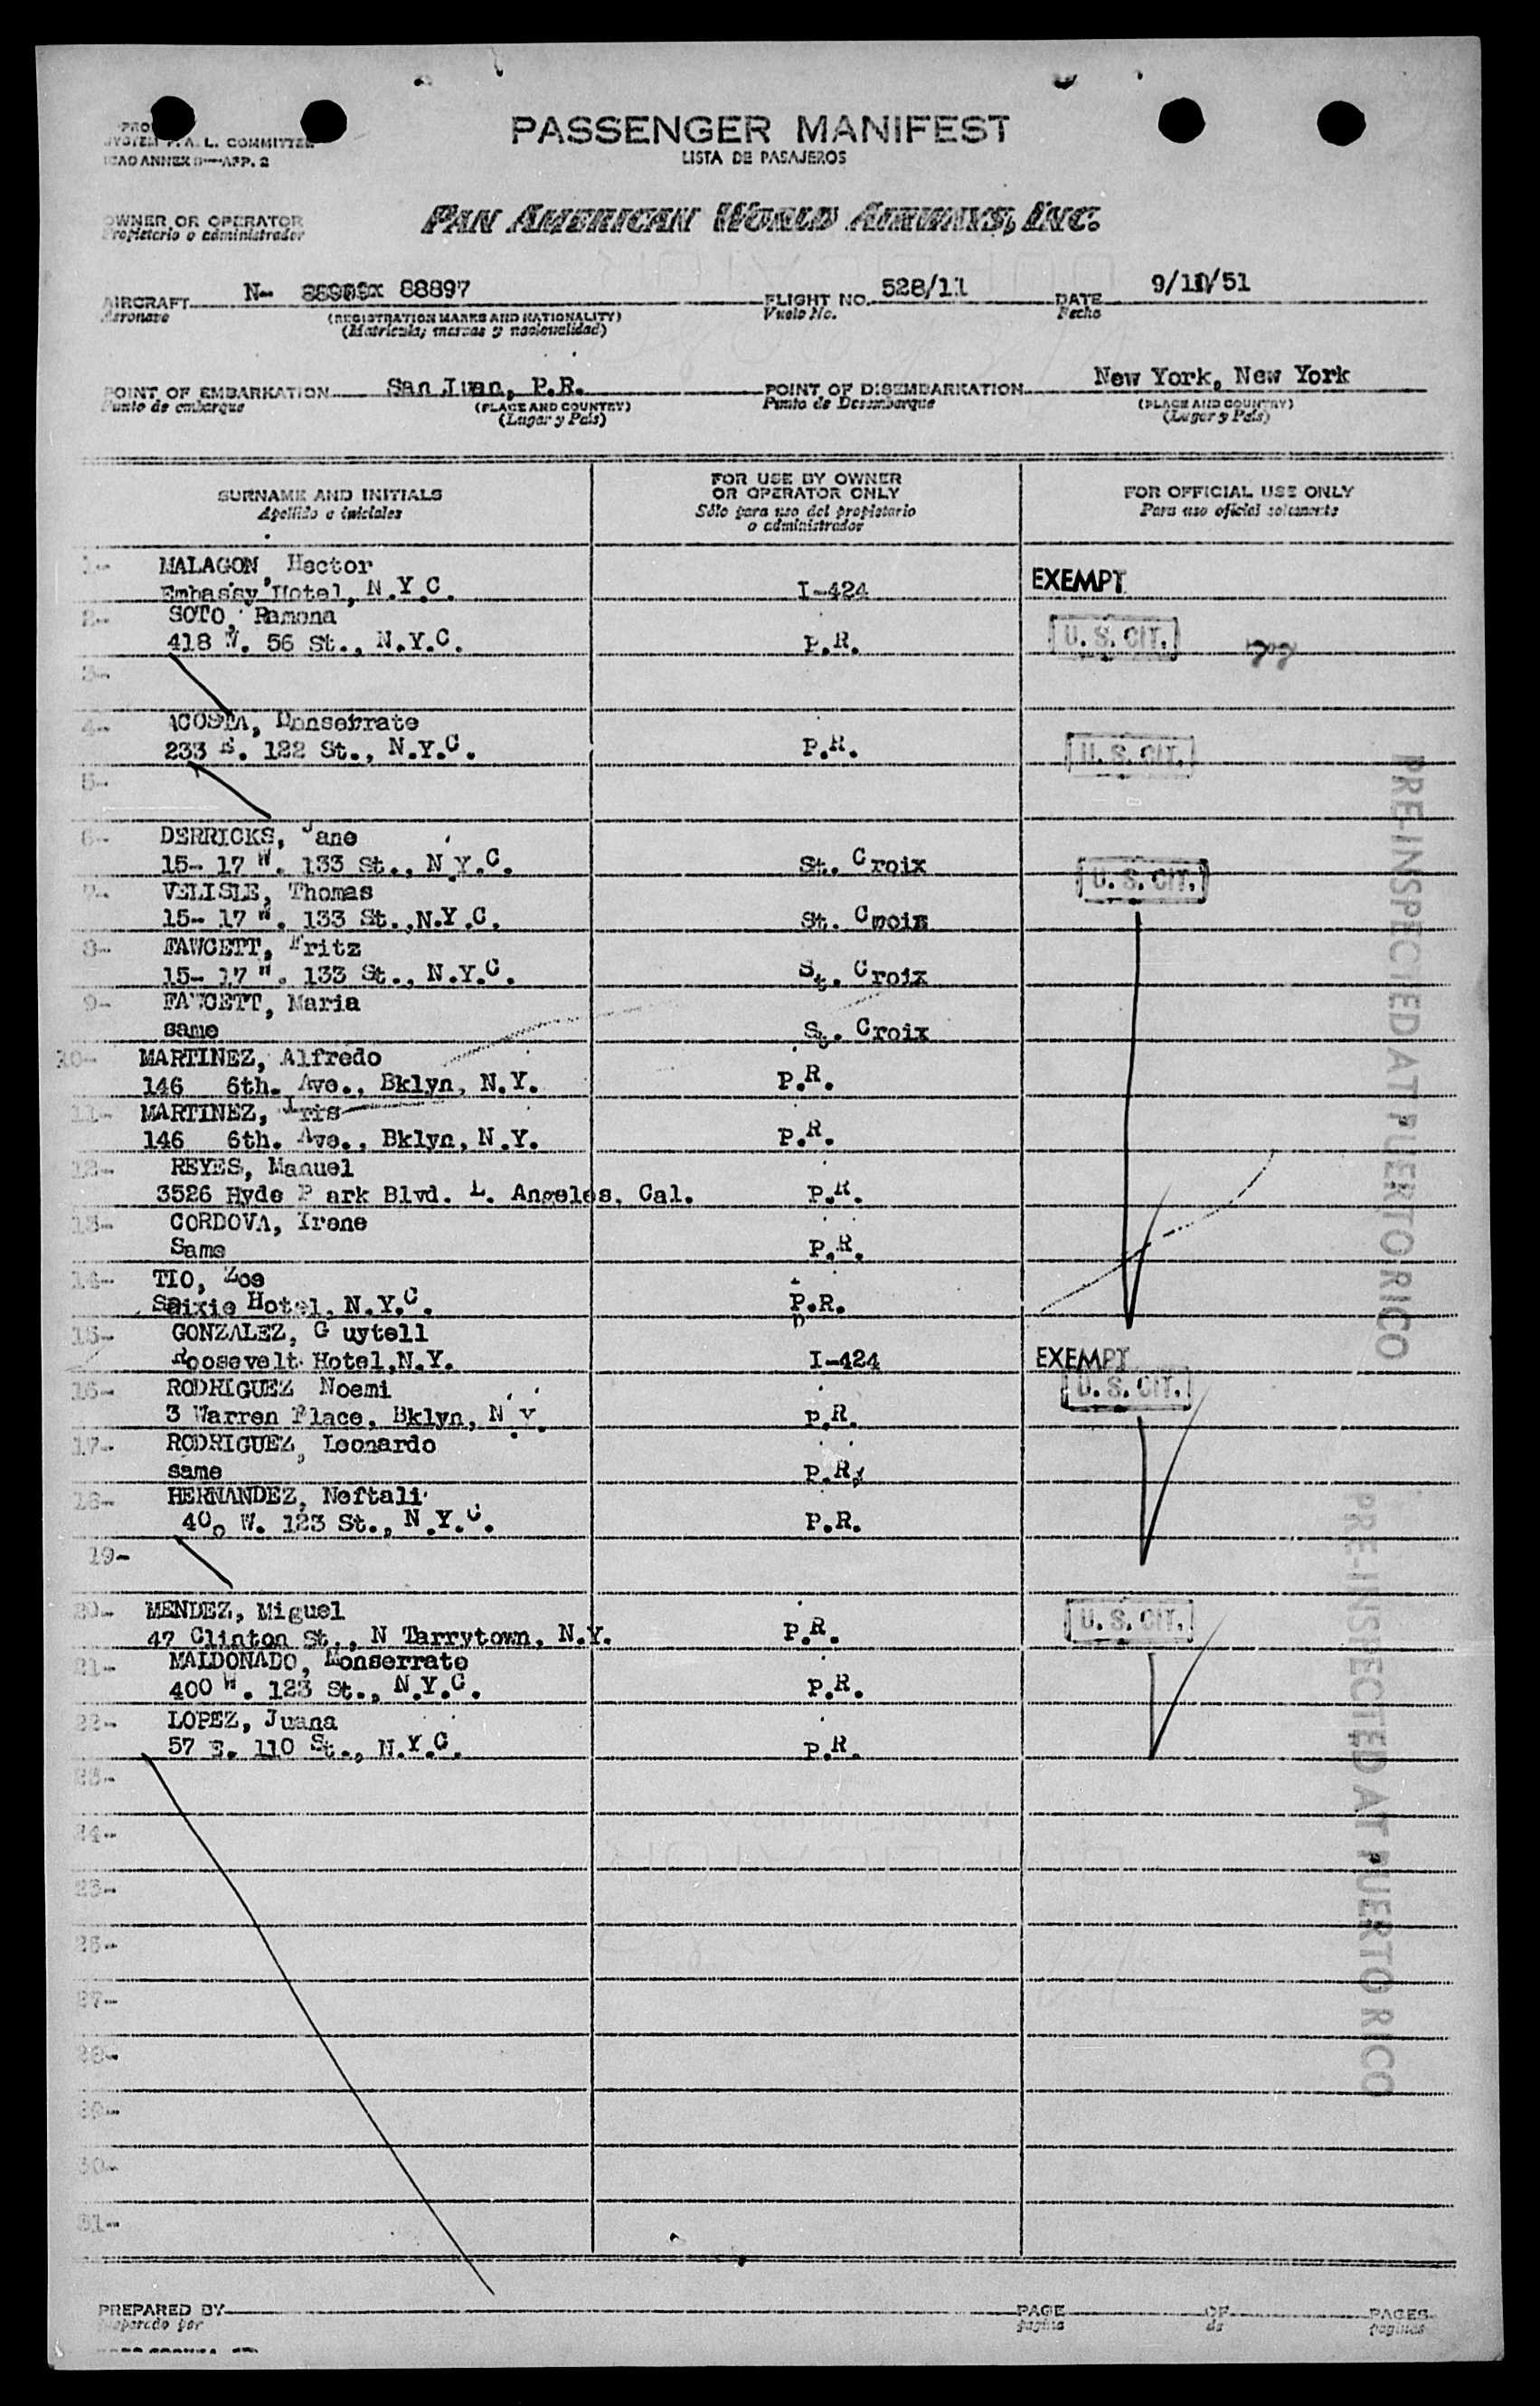 PASSENGER MANIFEST
LISTA DE PASAJEROS
SYSTEM F. A. L. COMMITTEE
ICAO ANNEX 9—APP. 2
OWNER OR OPERATOR
Propietario o administrador
PAN AMERICAN WORLD AIRWAYS, INC.
AIRCRAFT N- 88897
FLIGHT NO. 528/11
DATE 9/11/51
Aeronave
(REGISTRATION MARKS AND NATIONALITY)
Vuelo No.
Fecha
(Matrícula; marcas y nacionalidad)
POINT OF EMBARKATION San Juan, P.R.
POINT OF DISEMBARKATION New York, New York
Punto de embarque
(PLACE AND COUNTRY)
Punto de Desembarque
(PLACE AND COUNTRY)
(Lugar y País)
(Lugar y País)
SURNAME AND INITIALS
Apellido e iniciales
FOR USE BY OWNER
OR OPERATOR ONLY
Sólo para uso del propietario
o administrador
FOR OFFICIAL USE ONLY
Para uso oficial solamente
1- MALAGON, Hector
Embassy Hotel, N.Y.C. I-424 EXEMPT
2- SOTO, Ramona
418 W. 56 St., N.Y.C. P.R. U. S. CIT.
3-
4- ACOSTA, Monserrate
233 E. 122 St., N.Y.C. P.R. U. S. CIT.
5-
6- DERRICKS, Jane
15- 17 W. 133 St., N.Y.C. St. Croix U. S. CIT.
7- VELISLE, Thomas
15- 17 W. 133 St.,N.Y.C. St. Croix
8- FAWCETT, Fritz
15- 17 W. 133 St., N.Y.C. St. Croix
9- FAWCETT, Maria
same St. Croix
10- MARTINEZ, Alfredo
146 6th. Ave., Bklyn, N.Y. P.R.
11- MARTINEZ, Iris
146 6th. Ave., Bklyn, N.Y. P.R.
12- REYES, Manuel
3526 Hyde P ark Blvd. L. Angeles, Cal. P.R.
13- CORDOVA, Irene
Same P.R.
14- TIO, Zoe
Hotel, N.Y.C. P.R.
15- GONZALEZ, G uytell
Roosevelt Hotel,N.Y. I-424 EXEMPT
16- RODRIGUEZ Noemi U. S. CIT.
3 Warren Place, Bklyn, N.Y. P.R.
17- RODRIGUEZ, Leonardo
same P.R.
18- HERNANDEZ, Neftali
400 W. 123 St., N.Y.C. P.R.
19-
20- MENDEZ, Miguel U. S. CIT.
47 Clinton St., N Tarrytown, N.Y. P.R.
21- MALDONADO, Monserrate
400 W. 123 St., N.Y.C. P.R.
22- LOPEZ, Juana
57 E. 110 St., N.Y.C. P.R.
23-
24-
25-
26-
27-
28-
29-
30-
31-
PRE-INSPECTED AT PUERTO RICO
PRE-INSPECTED AT PUERTO RICO
PREPARED BY
PAGE OF PAGES
Preparado por
página de páginas